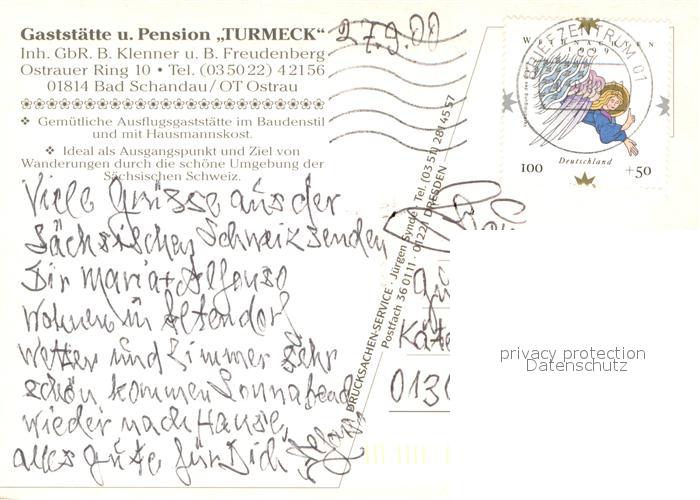 Gaststätte u. Pension „TURMECK"
Inh. GbR. B. Klenner u. B. Freudenberg
Ostrauer Ring 10 • Tel. (03 50 22) 4 21 56
01814 Bad Schandau / OT Ostrau
❖ Gemütliche Ausflugsgaststätte im Baudenstil
und mit Hausmannskost.
❖ Ideal als Ausgangspunkt und Ziel von
Wanderungen durch die schöne Umgebung der
Sächsischen Schweiz.
27.9.00
Viele Grüsse aus der
Sächsischen Schweiz senden
Dir Maria + Alfonso
Wohnen in Altendorf,
Wetter und Zimmer sehr
schön kommen Sonnabend
wieder nach Hause,
alles gute für Dich
DRUCKSACHEN-SERVICE · Jürgen Synde · Tel. (03 51) 2 81 45 57
Postfach 36 01 11 · 01221 DRESDEN
WEIHNACHTEN
1999
BRIEFZENTRUM 01
Deutschland
100 +50
Käte
013
privacy protection
Datenschutz